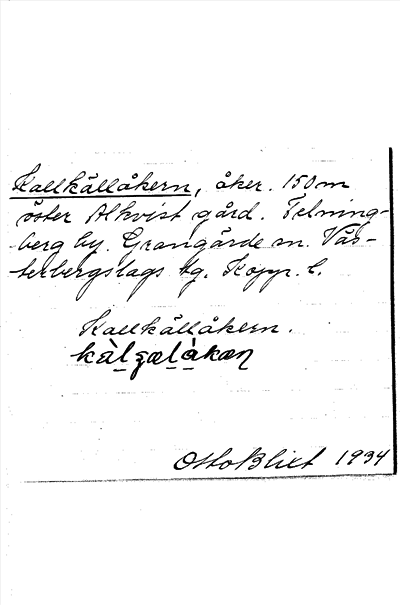 Kallkällåkern, åker. 150 m
öster Alkvist gård. Telning-
berg by. Grangärde sn. Väs-
terbergslags tg. Kopp. l.
Kallkällåkern.
Otto Blixt 1934